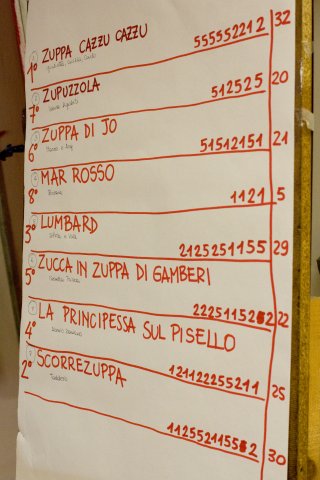 1° ZUPPA CAZZU CAZZU
555552212 32
7° ZUPUZZOLA
512525 20
6° ZUPPA DI JO
51512151 21
8° MAR ROSSO
1121 5
3° LUMBARD
2125251155 29
5° ZUCCA IN ZUPPA DI GAMBERI
2225115252 22
4° LA PRINCIPESSA SUL PISELLO
121122255211 25
2° SCORREZUPPA
30